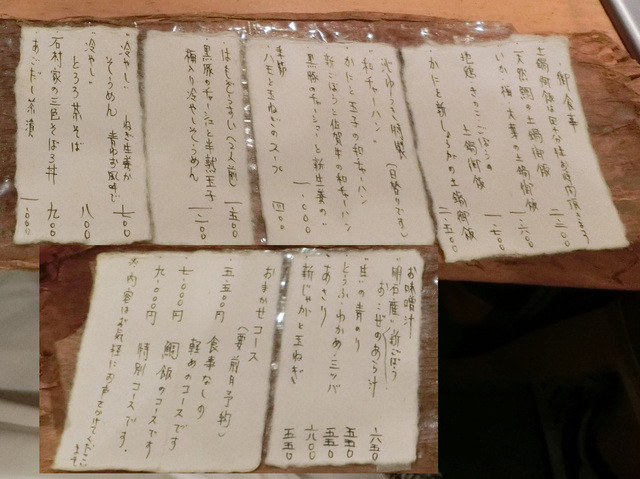 御食事
土鍋御飯は
天然鯛の土鍋御飯 二、二〇〇
いか・梅・大葉の土鍋御飯 一、六〇〇
地鶏ときのことごぼうの土鍋御飯 一、七〇〇
かにと新しょうがの土鍋御飯 二、五〇〇
池ゆうき特製(日替りです)
"和チャーハン"
かにと玉子の和チャーハン
新ごぼうと佐賀牛の和チャーハン
黒豚のチャーシューと新生姜の〃 一、〇〇〇
季節
ハモと玉ねぎのスープ 四〇〇
はもぞうすい(2人前) 一、五〇〇
黒豚のチャーシューと半熟玉子
梅入り冷やしそうめん 一、二〇〇
冷やし
そうめん 青ねぎ風味で 七〇〇
冷やし
とろろ茶そば 八〇〇
石村家の三色そぼろ丼 九〇〇
あごだし茶漬 一、〇〇〇
お味噌汁
"明石産"おこぜのあら汁 新ごぼう 六五〇
"生"の青のり 五五〇
とうふ・わかめ・ミツバ 五五〇
あさり 六〇〇
新じゃがと玉ねぎ 五五〇
おまかせコース
(要前日予約)
五、五〇〇円 食事なしの
軽めのコースです
七、〇〇〇円 鯛飯のコースです
九、〇〇〇円 特別コースです。
※内容はお気軽にお声をかけてくださいませ